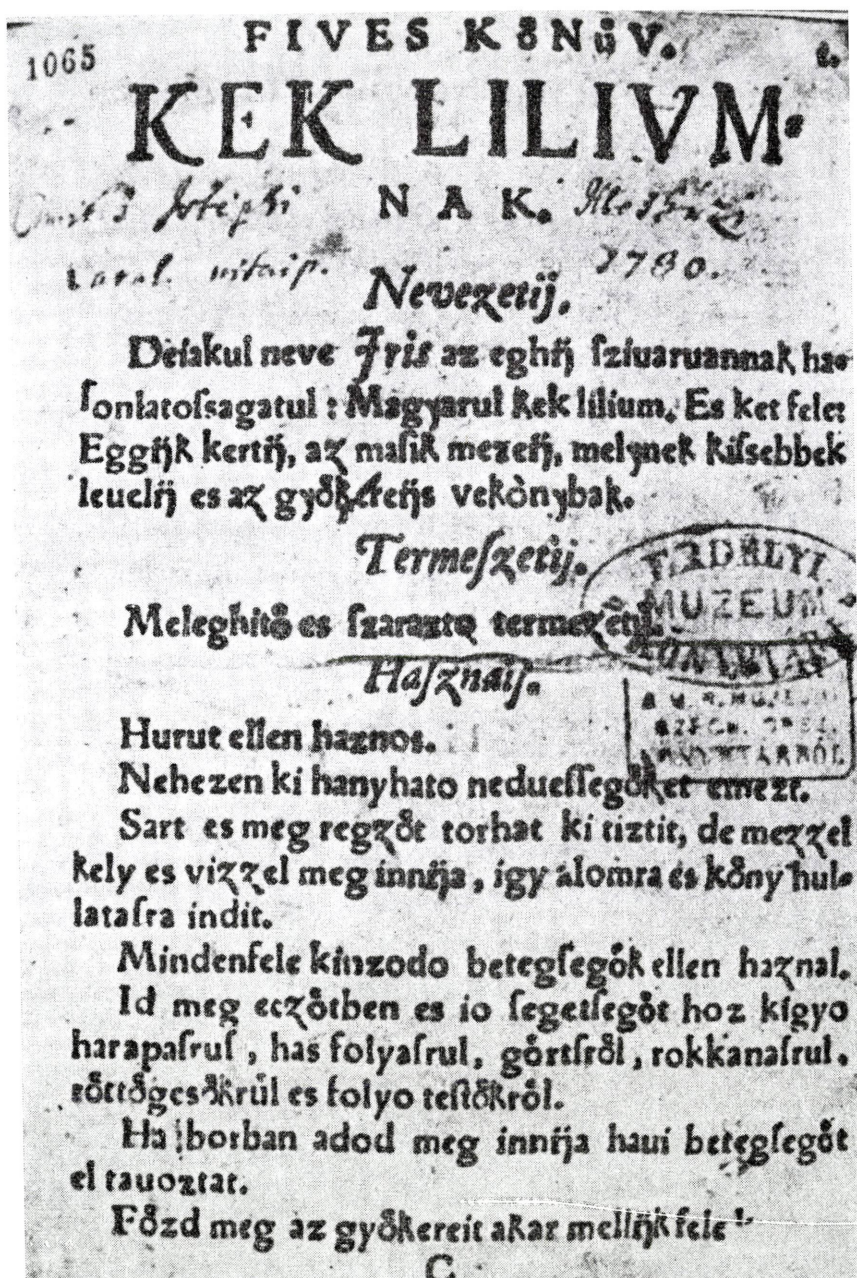 FIVES KỏNüV.
1065
KEK LILIVM-
NAK.
1780.
Nevezetij.
Deſakul neve Iris az eghij ſziuaruannak ha-
ſonlatoſsagatul : Magyarul kek lilium. Es ket fele:
Eggijk kertij, az maſik mezeij, melynek kiſsebbek
leuelij es az vekònybak.
Termeſzetij.
Meleghitỏ es ſzarazto
ERDÉLYI
MUZEUM
KÖNYVTÁR
Haſznais.
Hurut ellen haznos.
Nehezen ki hanyhato nedueſſegỏket emezt.
Sart es meg regzỏt torhat ki tiztit, de mezzel
kely es vizzel meg innija, igy alomra es kỏny hul-
lataſra indit.
Mindenfele kinzodo betegſegỏk ellen haznal.
Id meg eczỏtben es io ſegetſegỏt hoz kigyo
harapaſruſ, has folyaſrul, gỏrtſrỏl, rokkanaſrul.
es folyo teſtỏkrỏl.
Ha borban adod meg innija haui betegſegỏt
el tauoztat.
Fỏzd meg az gyỏkereit akar mellijk fele
C